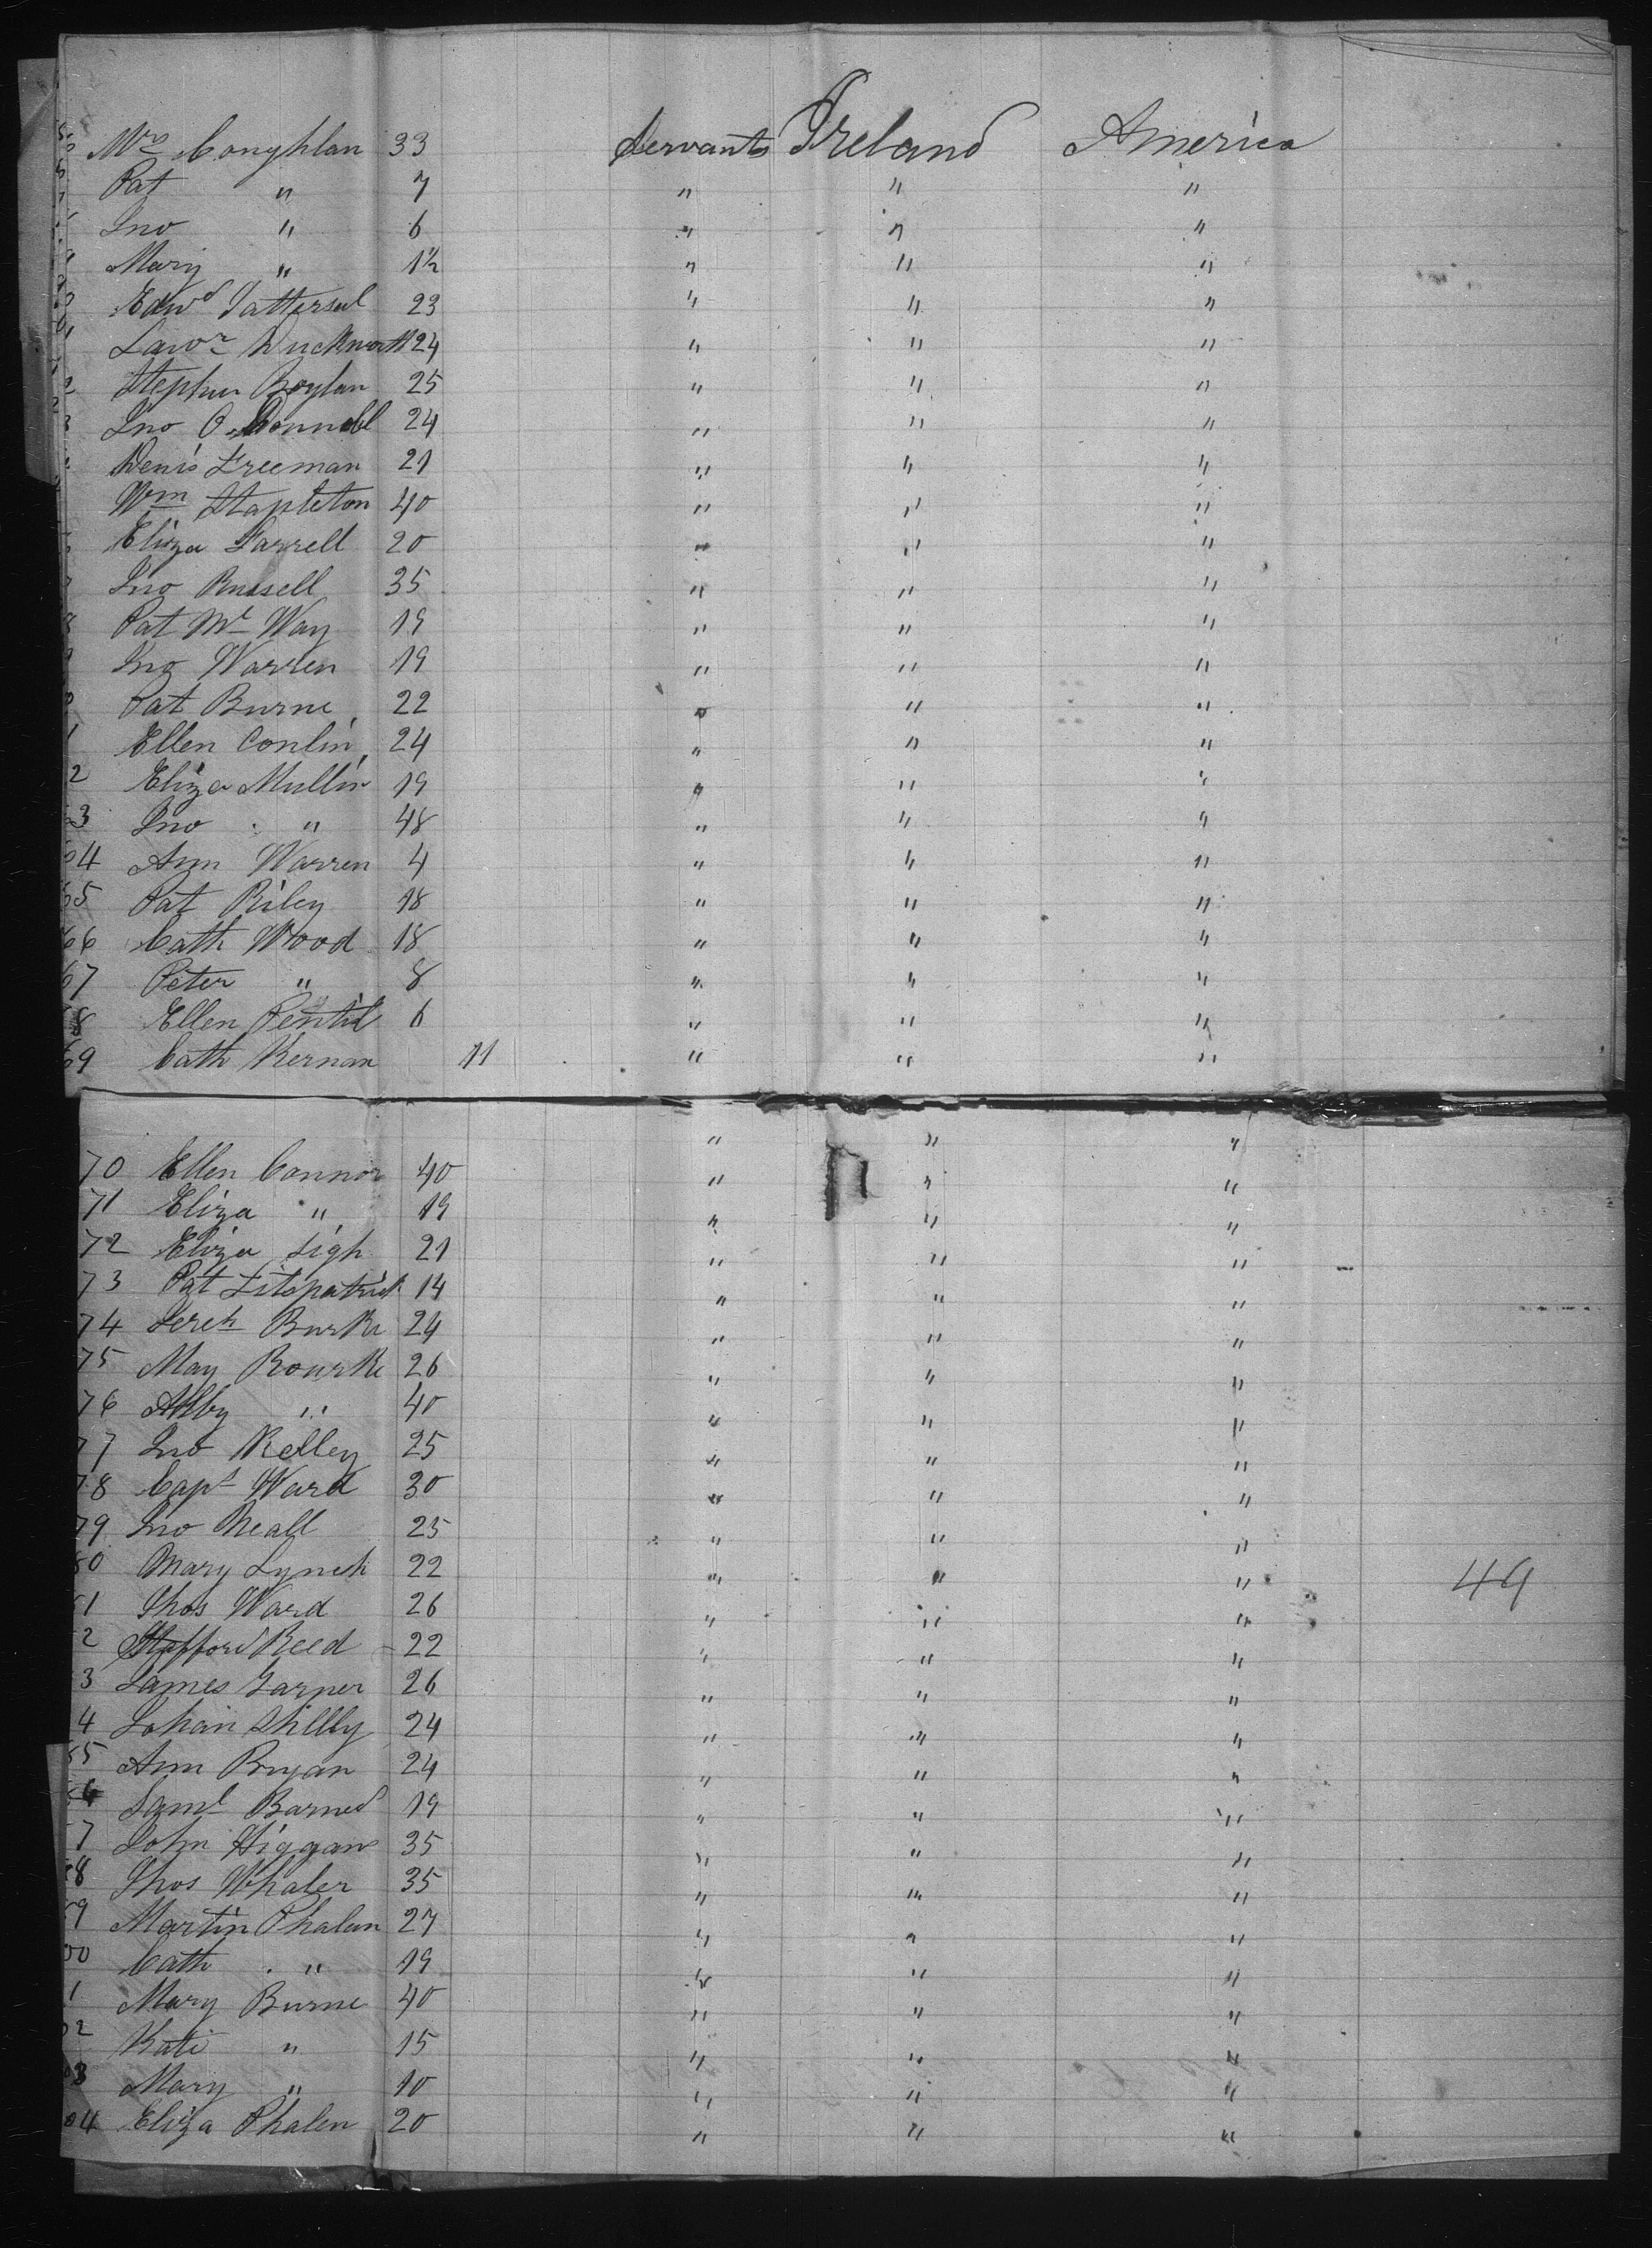 Mrs Coughlan 33 Servants Ireland America
Pat " 7 " " "
Jno " 6 " " "
Mary " 1½ " " "
Edwd Tattersul 23 " " "
Lawr Duckworth 24 " " "
Stephen Boylan 25 " " "
Jno O Donnell 24 " " "
Denis Freeman 21 " " "
Wm Stapleton 40 " " "
Eliza Farrell 20 " " "
Jno Russell 35 " " "
Pat Mc Way 19 " " "
Jno Warren 19 " " "
Pat Burne 22 " " "
1 Ellen Conlin 24 " " "
2 Eliza Mullin 19 " " "
3 Jno " 48 " " "
64 Ann Warren 4 " " "
65 Pat Riley 18 " " "
66 Cath Wood 18 " " "
67 Peter " 8 " " "
68 Ellen Pentil 6 " " "
69 Cath Kernan 11 " " "
70 Ellen Connor 40 " " "
71 Eliza " 19 " " "
72 Eliza 21 " " "
73 Pat Fitzpatrick 14 " " "
74 Burke 24 " " "
75 May Rourke 26 " " "
76 " 40 " " "
77 Jno Kelley 25 " " "
78 Capt Ward 30 " " "
79 Jno Neall 25 " " "
80 Mary Lynch 22 " " " 49
1 Thos Ward 26 " " "
2 Stafford Reed 22 " " "
3 James 26 " " "
4 24 " " "
85 Ann Bryan 24 " " "
Saml Barned 19 " " "
7 John Higgans 35 " " "
88 Thos Whaler 35 " " "
89 Martin Phalen 27 " " "
90 Cath " 19 " " "
1 Mary Burne 40 " " "
2 Kati " 15 " " "
3 Mary " 10 " " "
4 Eliza Phalen 20 " " "